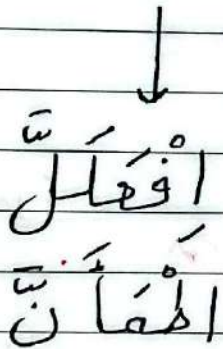 افْعَلَلَّ
اطْمَأَنَّ